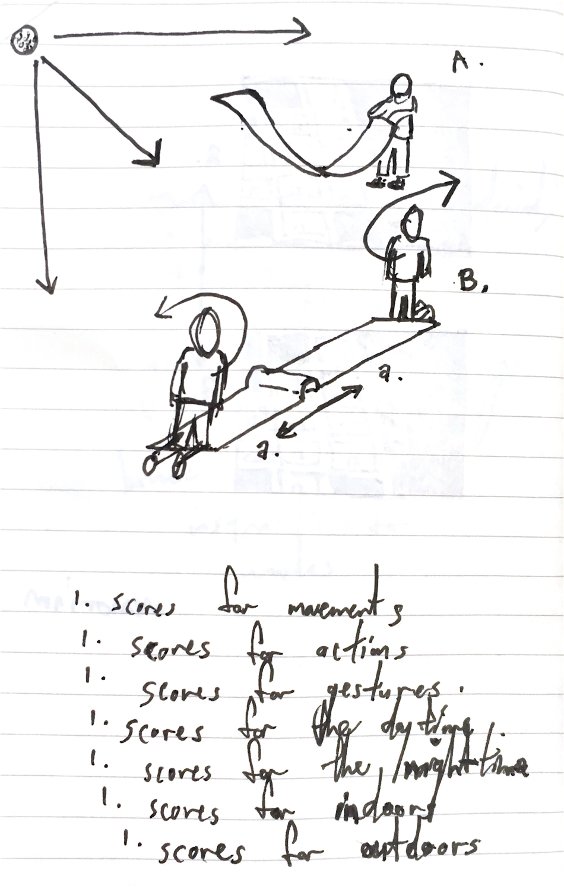 A.
B.
a.
a.
1. scores for movements
1. scores for actions
1. scores for gestures.
1. scores for the dytime.
1. scores for the nighttime
1. scores for indoors
1. scores for outdoors